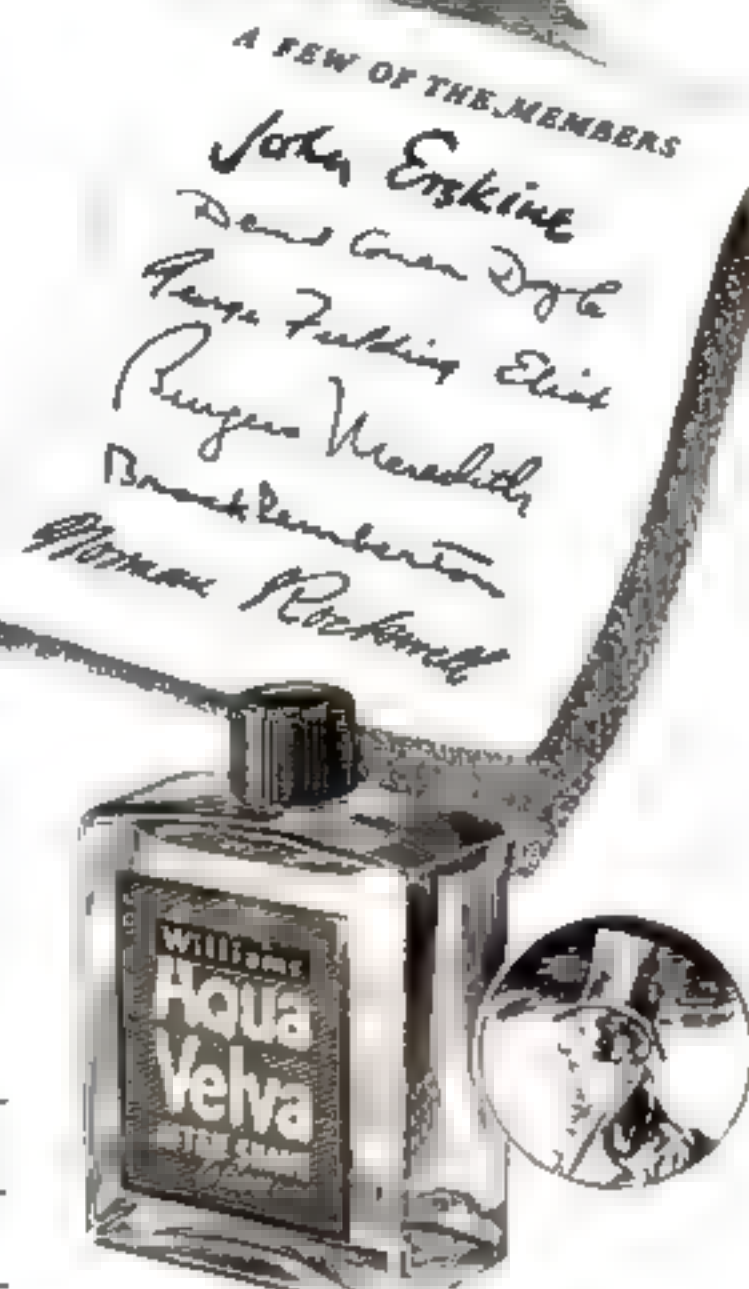 A FEW OF THE MEMBERS
John Erskine
Denis Conan Doyle
George Fielding Eliot
Burgess Meredith
Brock Pemberton
Norman Rockwell
Williams
Aqua
Velva
AFTER SHAVE